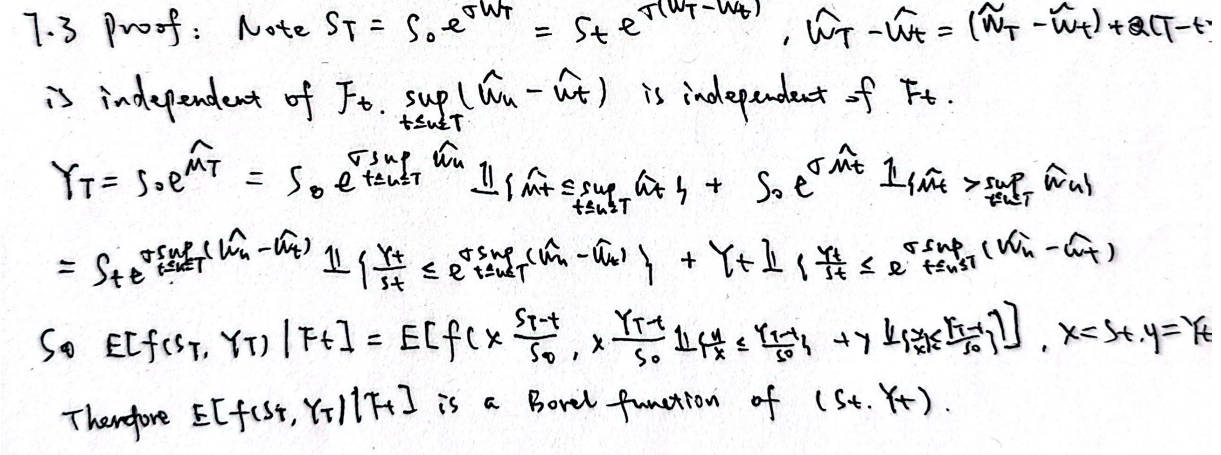 7.3 Proof: Note S_T = S_0 e^{σŴ_T} = S_t e^{σ(Ŵ_T-Ŵ_t)}, Ŵ_T - Ŵ_t = (W̃_T - W̃_t) + α(T-t
is independent of F_t. sup_{t≤u≤T} (Ŵ_u - Ŵ_t) is independent of F_t.
Y_T = S_0 e^{M̂_T} = S_0 e^{σ sup_{t≤u≤T} Ŵ_u} 𝟙{M̂_t ≤ sup_{t≤u≤T} Ŵ_t} + S_0 e^{σM̂_t} 𝟙{M̂_t > sup_{t≤u≤T} Ŵ_u}
= S_t e^{σ sup_{t≤u≤T} (Ŵ_u - Ŵ_t)} 𝟙{Y_t/S_t ≤ e^{σ sup_{t≤u≤T} (Ŵ_u - Ŵ_t)}} + Y_t 𝟙{Y_t/S_t ≤ e^{σ sup_{t≤u≤T} (Ŵ_u - Ŵ_t)}
So E[f(S_T, Y_T) | F_t] = E[f(x S_{T-t}/S_0, x Y_{T-t}/S_0 𝟙{y/x ≤ Y_{T-t}/S_0} + y 𝟙{y/x ≤ Y_{T-t}/S_0})], x = S_t, y = Y_t
Therefore E[f(S_T, Y_T) | F_t] is a Borel function of (S_t, Y_t).